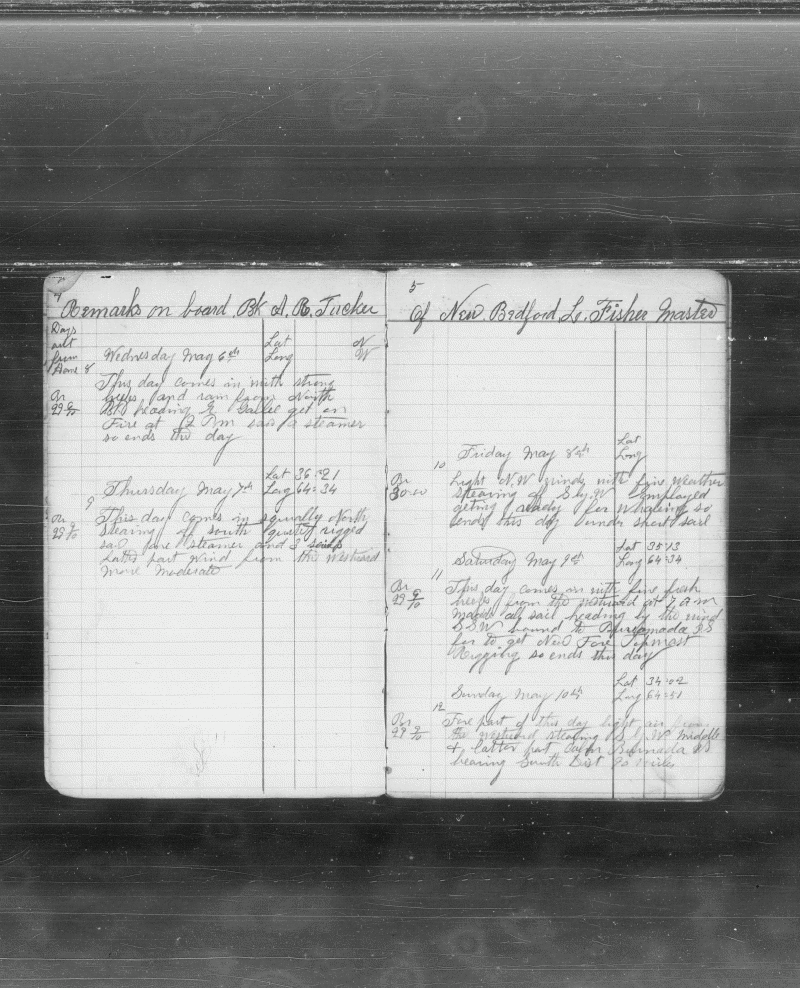 4
Remarks on board Bk A. R. Tucker
Days
out
from
Home 8
Wednesday May 6th
Lat N
Long W
This day comes in with strong
breeze and rain from North
Br
29 9/10
heading E get on
Fire at 12 P m saw a steamer
so ends the day
Thursday May 7th
Lat 36-21
Long 64-34
9
This day comes in squally North
Br
stearing of south
rigged
sail one steamer and 3
Latter part wind from the Westward
More Moderate
5
Of New Bedford L. Fisher Master
Friday May 8th
Lat
Long
10
Br
30-00
Light N.W winds with fine weather
stearing of S by W Employed
geting ready for whaleing so
ends this day under short sail
Saturday May 9th
Lat 35 13
Long 64-34
11
Br
29 9/10
This day comes on with fine fresh
breeze from the westward at 7 a m
made all sail heading by the wind
S.S.W bound to Buramada IS
for to get New Fore Topmost
Rigging so ends this day
Sunday May 10th
Lat 34-02
Long 64-51
12
Br
29 9/10
Fore part of this day light air from
the westward stearing S by W Middle
& latter part Calm Burmada IS
bearing South Dist 90 miles